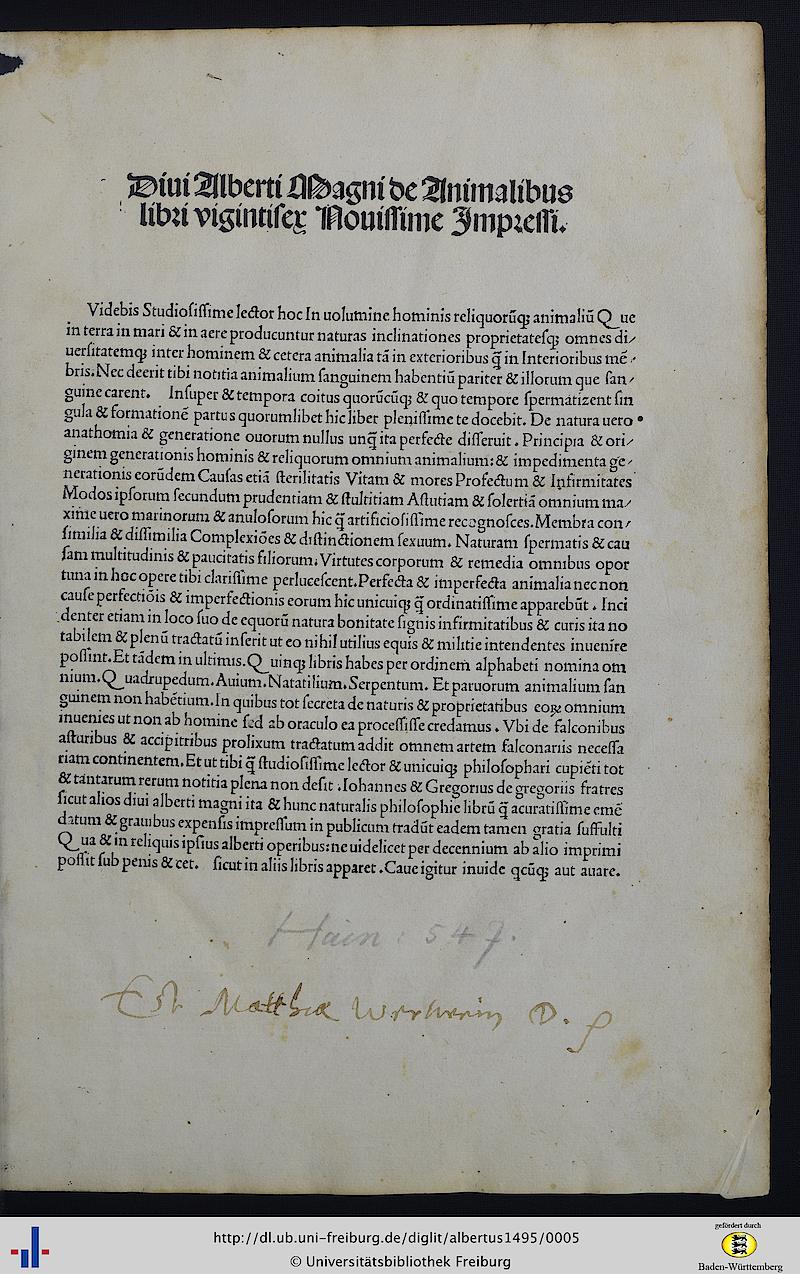 Diui Alberti Magni de Animalibus
libri vigintisex Nouiſſime Impreſſi.
Videbis Studioſiſſime lector hoc In uolumine hominis reliquorūq; animaliū Que
in terra in mari & in aere producuntur naturas inclinationes proprietateſq; omnes di/
uerſitatemq; inter hominem & cetera animalia tā in exterioribus q̄ in Interioribus mē/
bris. Nec deerit tibi notitia animalium ſanguinem habentiū pariter & illorum que ſan/
guine carent. Inſuper & tempora coitus quorūcūq; & quo tempore ſpermatizent ſin
gula & formationē partus quorumlibet hic liber pleniſſime te docebit. De natura uero
anathomia & generatione ouorum nullus unq̄ ita perfecte diſſeruit. Principia & ori/
ginem generationis hominis & reliquorum omnium animalium: & impedimenta ge/
nerationis eorūdem Cauſas etiā ſterilitatis Vitam & mores Profectum & Infirmitates
Modos ipſorum ſecundum prudentiam & ſtultitiam Aſtutiam & ſolertiā omnium ma/
xime uero marinorum & anuloſorum hic q̄ artificioſiſſime recognoſces. Membra con/
ſimilia & diſſimilia Complexiōes & diſtinctionem ſexuum. Naturam ſpermatis & cau
ſam multitudinis & paucitatis filiorum. Virtutes corporum & remedia omnibus opor
tuna in hoc opere tibi clariſſime perluceſcent. Perfecta & imperfecta animalia nec non
cauſe perfectiōis & imperfectionis eorum hic unicuiq; q̄ ordinatiſſime apparebūt. Inci
denter etiam in loco ſuo de equorū natura bonitate ſignis infirmitatibus & curis ita no
tabilem & plenū tractatū inſerit ut eo nihil utilius equis & militie intendentes inuenire
poſſint. Et tādem in ultimis. Quinq; libris habes per ordinem alphabeti nomina om
nium. Quadrupedum. Auium. Natatilium. Serpentum. Et paruorum animalium ſan
guinem non habētium. In quibus tot ſecreta de naturis & proprietatibus eoꝝ omnium
inuenies ut non ab homine ſed ab oraculo ea proceſſiſſe credamus. Vbi de falconibus
aſturibus & accipitribus prolixum tractatum addit omnem artem falconariis neceſſa
riam continentem. Et ut tibi q̄ ſtudioſiſſime lector & unicuiq; philoſophari cupiēti tot
& tantarum rerum notitia plena non deſit. Iohannes & Gregorius de gregoriis fratres
ſicut alios diui alberti magni ita & hunc naturalis philoſophie librū q̄ acuratiſſime emē
datum & grauibus expenſis impreſſum in publicum tradūt eadem tamen gratia ſuffulti
Qua & in reliquis ipſius alberti operibus: ne uidelicet per decennium ab alio imprimi
poſſit ſub penis & cet. ſicut in aliis libris apparet. Caue igitur inuide qcūq; aut auare.
Hain: 547.
Est Matthiae D.
http://dl.ub.uni-freiburg.de/diglit/albertus1495/0005
© Universitätsbibliothek Freiburg
gefördert durch
Baden-Württemberg